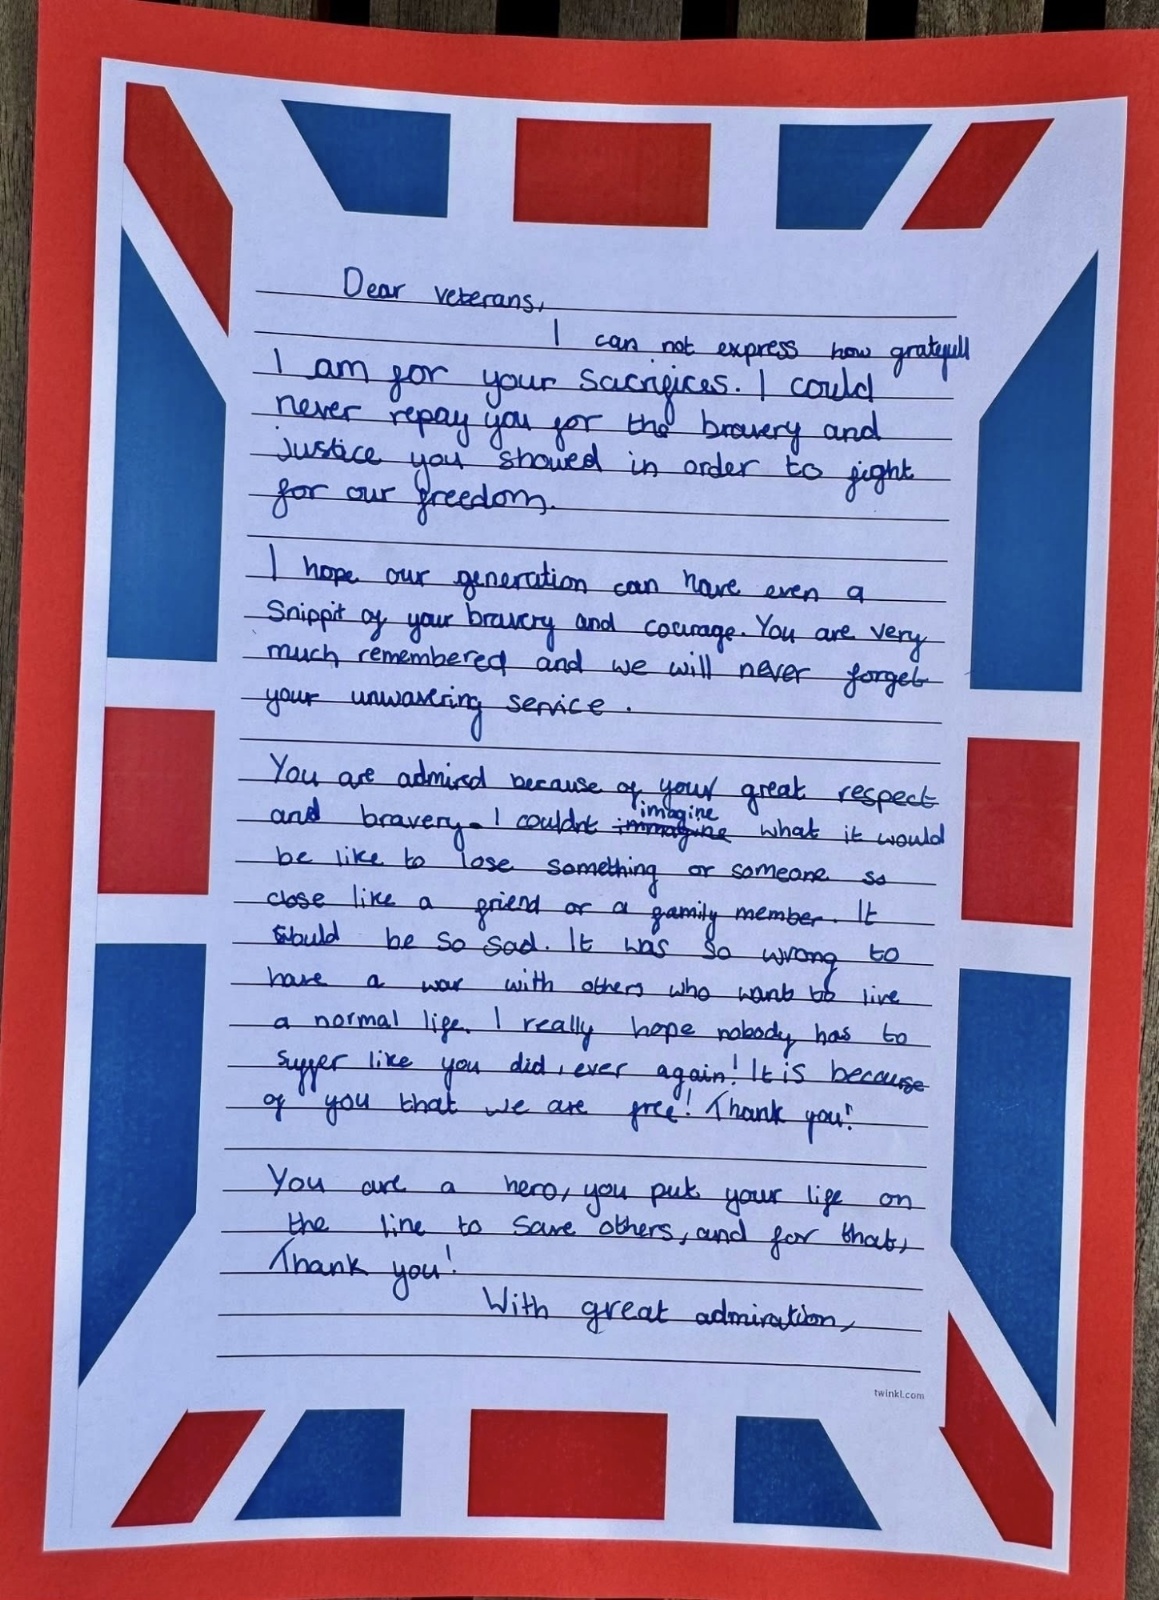 Dear veterans,
I can not express how gratefull
I am for your sacrifices. I could
never repay you for the bravery and
justice you showed in order to fight
for our freedom.
I hope our generation can have even a
Snippit of your bravery and courage. You are very
much remembered and we will never forget
your unwavering service.
You are admired because of your great respect
imagine
and bravery. I couldnt immagine what it would
be like to lose something or someone so
close like a friend or a family member. It
would be so sad. It was so wrong to
have a war with others who want to live
a normal life. I really hope nobody has to
suffer like you did, ever again! It is because
of you that we are free! Thank you!
You are a hero, you put your life on
the line to save others, and for that,
Thank you!
With great admiration,
twinkl.com